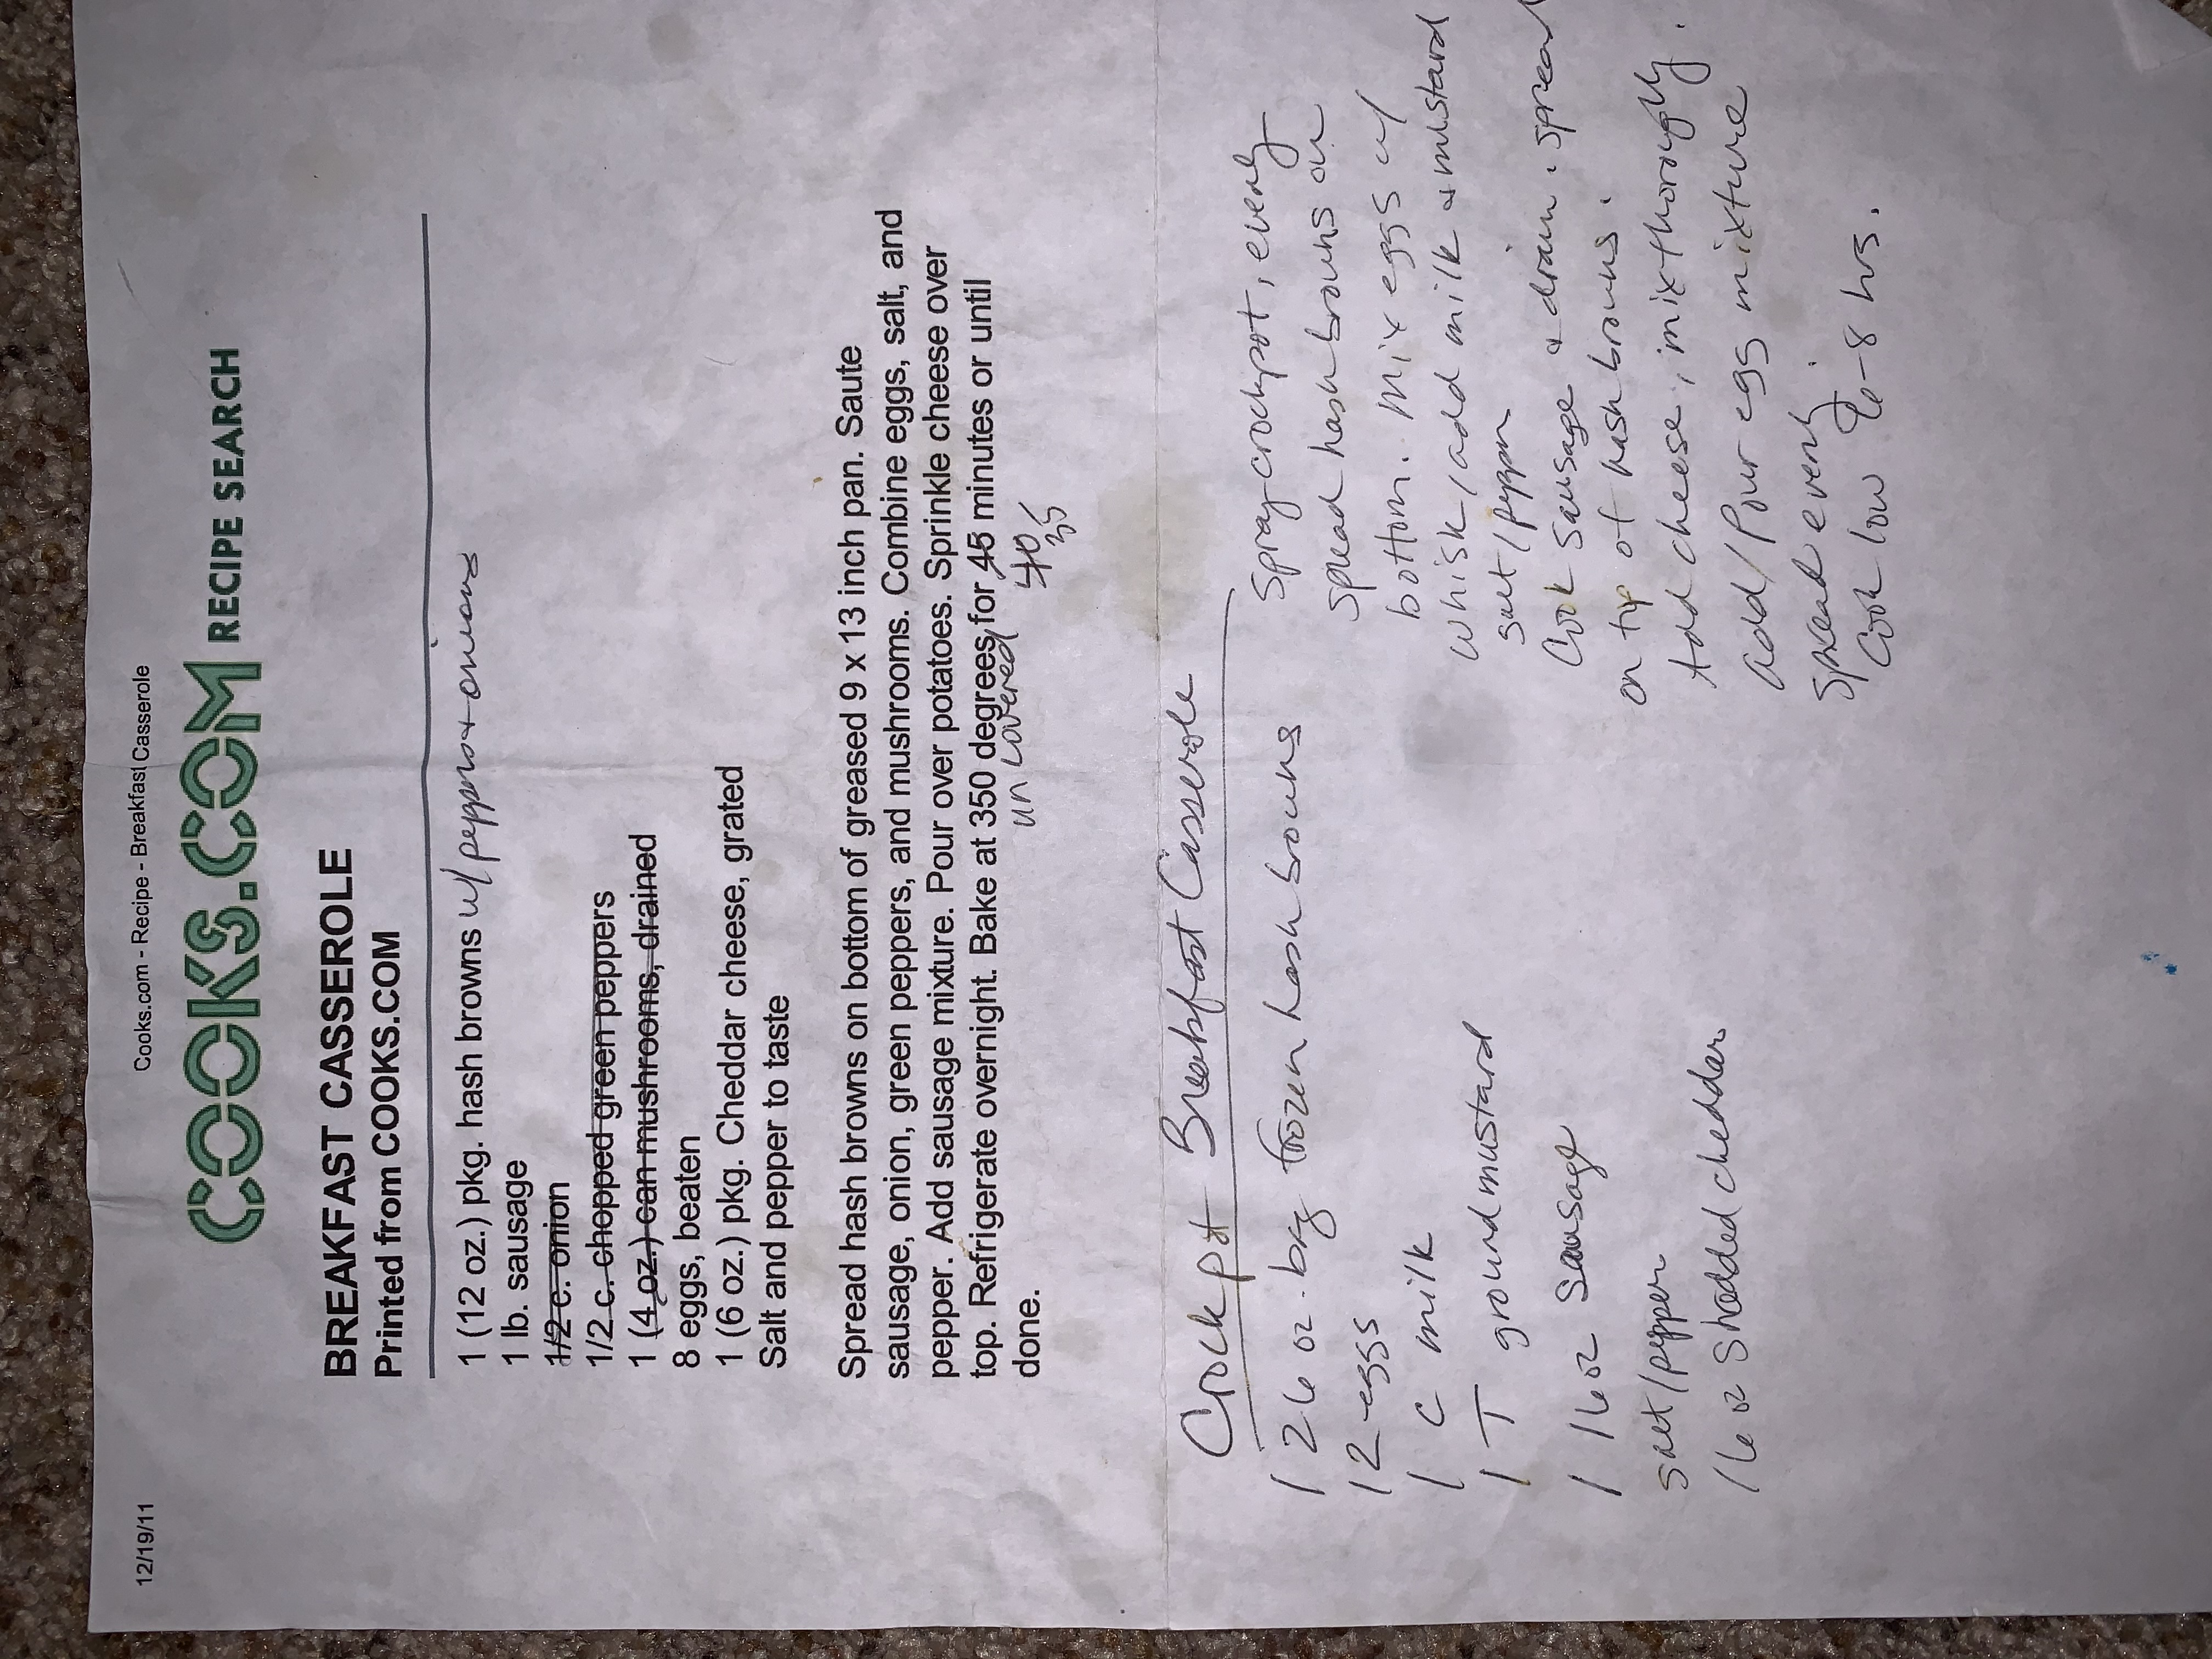 12/19/11
Cooks.com - Recipe - Breakfast Casserole
COOKS.COM RECIPE SEARCH
BREAKFAST CASSEROLE
Printed from COOKS.COM
1 (12 oz.) pkg. hash browns w/ peppers + onions
1 lb. sausage
1/2 c. onion
1/2 c. chopped green peppers
1 (4 oz.) can mushrooms, drained
8 eggs, beaten
1 (6 oz.) pkg. Cheddar cheese, grated
Salt and pepper to taste
Spread hash browns on bottom of greased 9 x 13 inch pan. Saute
sausage, onion, green peppers, and mushrooms. Combine eggs, salt, and
pepper. Add sausage mixture. Pour over potatoes. Sprinkle cheese over
top. Refrigerate overnight. Bake at 350 degrees for 45 minutes or until
uncovered 40
done.
35
Crockpot Breakfast Casserole
1 26 oz. bag frozen hash browns
12 eggs
1 C milk
1 T ground mustard
1 16 oz Sausage
salt/pepper
16 oz Shredded cheddar
Spray crockpot, evenly
spread hash browns on
bottom. Mix eggs w/
whisk, add milk & mustard
salt/pepper
Cook sausage & drain. spread
on top of hash browns.
Add cheese, mix thoroughly.
add/Pour egg mixture
spread evenly.
Cook low 6-8 hrs.